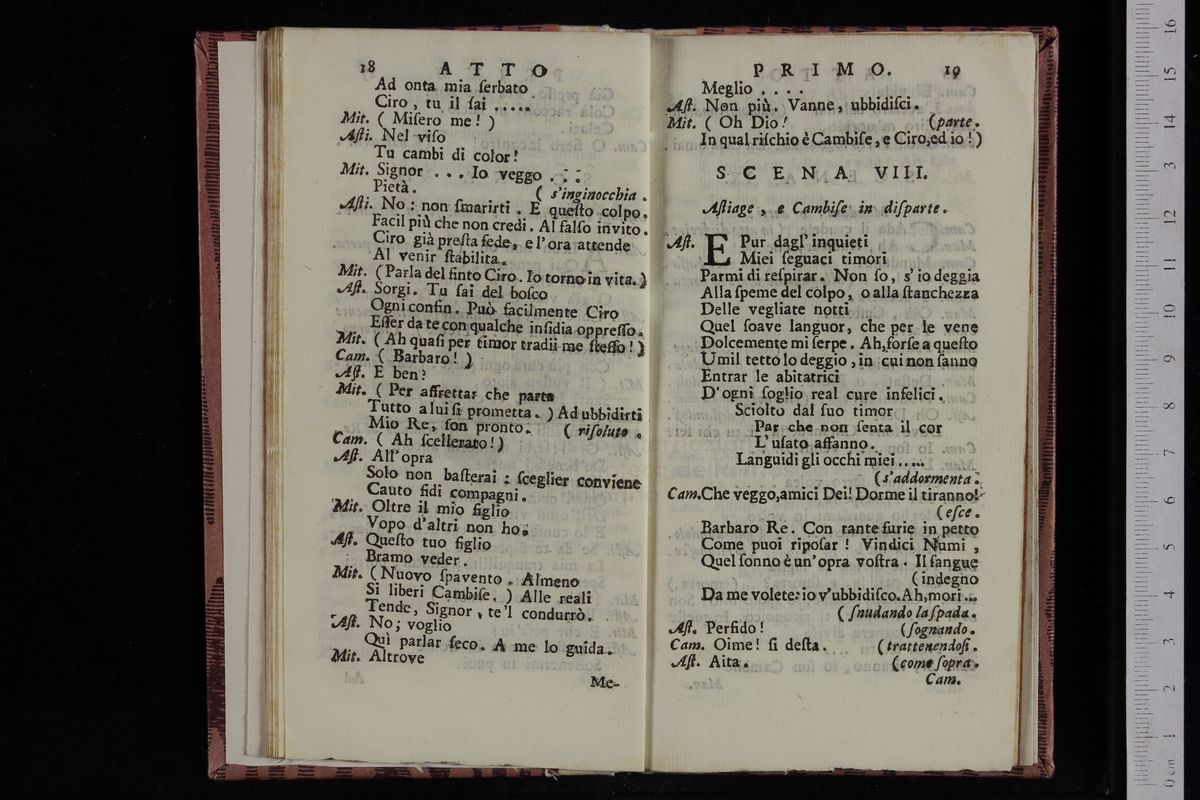 18 ATTO
Ad onta mia ſerbato
Ciro, tu il ſai .....
Mit. ( Miſero me! )
Aſti. Nel viſo
Tu cambi di color!
Mit. Signor ... Io veggo . : :
Pietà. ( s'inginocchia .
Aſti. No : non ſmarirti . E queſto colpo,
Facil più che non credi. Al falſo invito.
Ciro già preſta fede, e l'ora attende
Al venir ſtabilita.
Mit. ( Parla del finto Ciro. Io torno in vita. )
Aſt. Sorgi. Tu ſai del boſco
Ogni confin. Può facilmente Ciro
Eſſer da te con qualche inſidia oppreſſo.
Mit. ( Ah quaſi per timor tradii me ſteſſo! )
Cam. ( Barbaro! )
Aſt. E ben?
Mit. ( Per affrettar che parta
Tutto a lui ſi prometta. ) Ad ubbidirti
Mio Re, ſon pronto. ( riſoluto .
Cam. ( Ah ſcellerato! )
Aſt. All'opra
Solo non baſterai : ſceglier conviene
Cauto fidi compagni.
Mit. Oltre il mio figlio
Vopo d'altri non ho.
Aſt. Queſto tuo figlio
Bramo veder.
Mit. ( Nuovo ſpavento. Almeno
Si liberi Cambiſe. ) Alle reali
Tende, Signor, te'l condurrò.
Aſt. No; voglio
Quì parlar ſeco. A me lo guida.
Mit. Altrove
Me-
PRIMO. 19
Meglio ....
Aſt. Non più. Vanne, ubbidiſci.
Mit. ( Oh Dio! (parte.
In qual riſchio è Cambiſe, e Ciro,ed io! )
SCENA VIII.
Aſtiage , e Cambiſe in diſparte.
Aſt. E Pur dagl'inquieti
Miei ſeguaci timori
Parmi di reſpirar. Non ſo, s'io deggia
Alla ſpeme del colpo, o alla ſtanchezza
Delle vegliate notti
Quel ſoave languor, che per le vene
Dolcemente mi ſerpe. Ah,forſe a queſto
Umil tetto lo deggio, in cui non ſanno
Entrar le abitatrici
D'ogni ſoglio real cure infelici.
Sciolto dal ſuo timor
Par che non ſenta il cor
L'uſato affanno.
Languidi gli occhi miei .....
(s'addormenta.
Cam.Che veggo,amici Dei! Dorme il tiranno!
(eſce.
Barbaro Re. Con tante furie in petto
Come puoi ripoſar ! Vindici Numi ,
Quel ſonno è un'opra voſtra. Il ſangue
( indegno
Da me volete: io v'ubbidiſco. Ah,mori ...
( ſnudando la ſpada.
Aſt. Perfido! (ſognando.
Cam. Oime! ſi deſta. (trattenendoſi.
Aſt. Aita. (come ſopra.
Cam.